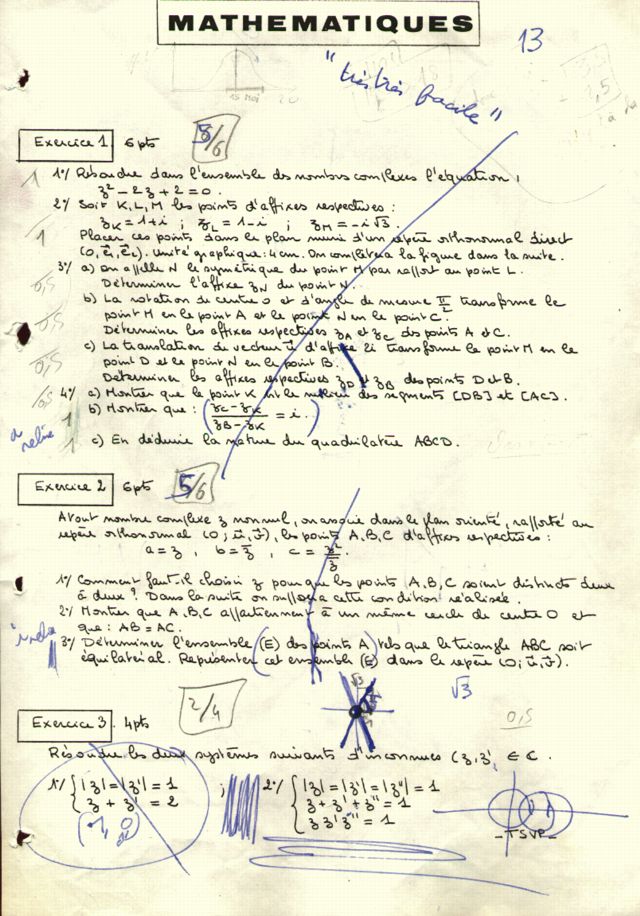 MATHEMATIQUES
13
"très très facile"
Exercice 1 6pts 5/6
1°/ Résoudre dans l'ensemble des nombres complexes l'équation :
z² - 2z + 2 = 0.
2°/ Soit K, L, M les points d'affixes respectives :
z_K = 1+i ; z_L = 1-i ; z_M = -i√3.
Placer ces points dans le plan muni d'un repère orthonormal direct
(O, e₁, e₂). Unité graphique : 4 cm. On complètera la figure dans la suite.
3°/ a) On appelle N le symétrique du point M par rapport au point L.
Déterminer l'affixe z_N du point N.
b) La rotation de centre O et d'angle de mesure π/2 transforme le
point M en le point A et le point N en le point C.
Déterminer les affixes respectives z_A et z_C des points A et C.
c) La translation de vecteur u d'affixe 2i transforme le point M en le
point D et le point N en le point B.
Déterminer les affixes respectives z_D et z_B des points D et B.
4°/ a) Montrer que le point K est le milieu des segments [DB] et [AC].
b) Montrer que : (z_C - z_K)/(z_B - z_K) = i.
c) En déduire la nature du quadrilatère ABCD.
Exercice 2 6pts 5/6
A tout nombre complexe z non nul, on associe dans le plan orienté, rapporté au
repère orthonormal (O; u, v), les points A, B, C d'affixes respectives :
a = z , b = z̄ , c = z²/z̄
1°/ Comment faut-il choisir z pour que les points A, B, C soient distincts deux
à deux ? Dans la suite on supposera cette condition réalisée.
2°/ Montrer que A, B, C appartiennent à un même cercle de centre O et
que : AB = AC.
3°/ Déterminer l'ensemble (E) des points A tels que le triangle ABC soit
équilatéral. Représenter cet ensemble (E) dans le repère (O; u, v).
√3
2/4
0,5
Exercice 3. 4pts
Résoudre les deux systèmes suivants d'inconnues (z, z' ∈ C.
1°/ { |z| = |z'| = 1 ; 2°/ { |z| = |z'| = |z''| = 1
z + z' = 2 z + z' + z'' = 1
z z' z'' = 1
_TSVP_